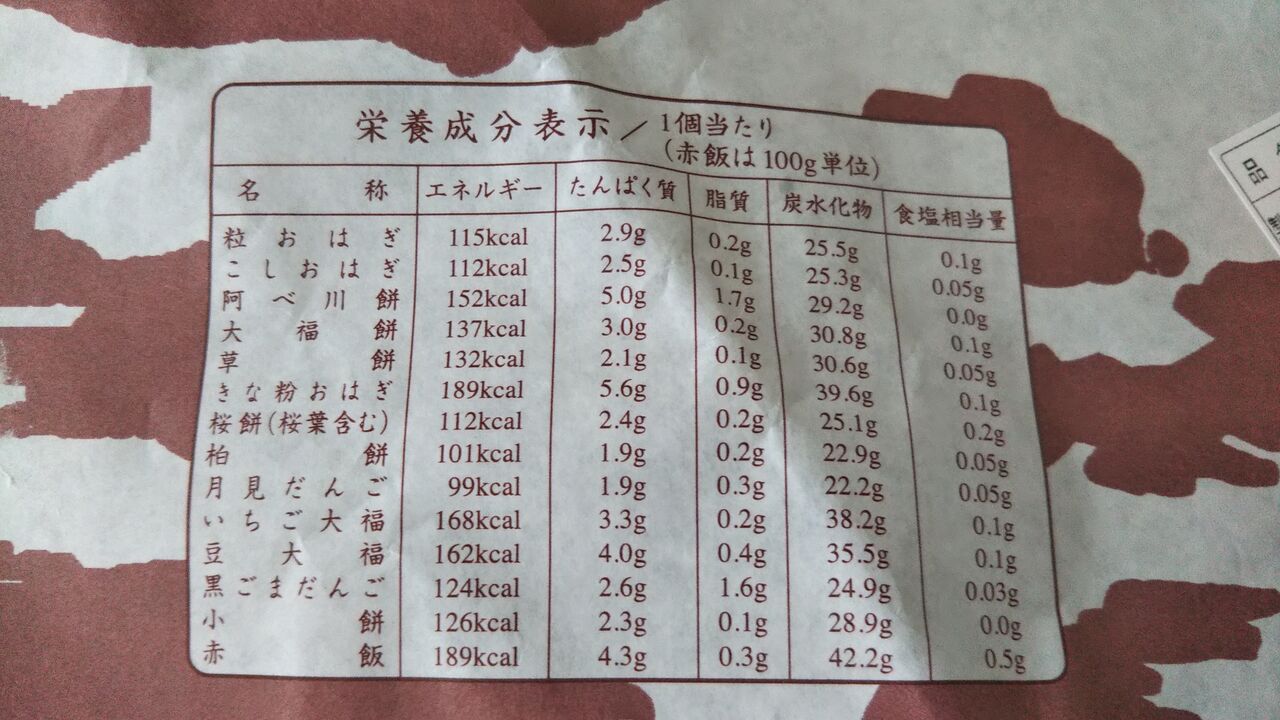 栄養成分表示／1個当たり
(赤飯は100g単位)
名称 エネルギー たんぱく質 脂質 炭水化物 食塩相当量
粒おはぎ 115kcal 2.9g 0.2g 25.5g 0.1g
こしおはぎ 112kcal 2.5g 0.1g 25.3g 0.05g
阿べ川餅 152kcal 5.0g 1.7g 29.2g 0.0g
大福餅 137kcal 3.0g 0.2g 30.8g 0.1g
草餅 132kcal 2.1g 0.1g 30.6g 0.05g
きな粉おはぎ 189kcal 5.6g 0.9g 39.6g 0.1g
桜餅(桜葉含む) 112kcal 2.4g 0.2g 25.1g 0.2g
柏餅 101kcal 1.9g 0.2g 22.9g 0.05g
月見だんご 99kcal 1.9g 0.3g 22.2g 0.05g
いちご大福 168kcal 3.3g 0.2g 38.2g 0.1g
豆大福 162kcal 4.0g 0.4g 35.5g 0.1g
黒ごまだんご 124kcal 2.6g 1.6g 24.9g 0.03g
小餅 126kcal 2.3g 0.1g 28.9g 0.0g
赤飯 189kcal 4.3g 0.3g 42.2g 0.5g
品